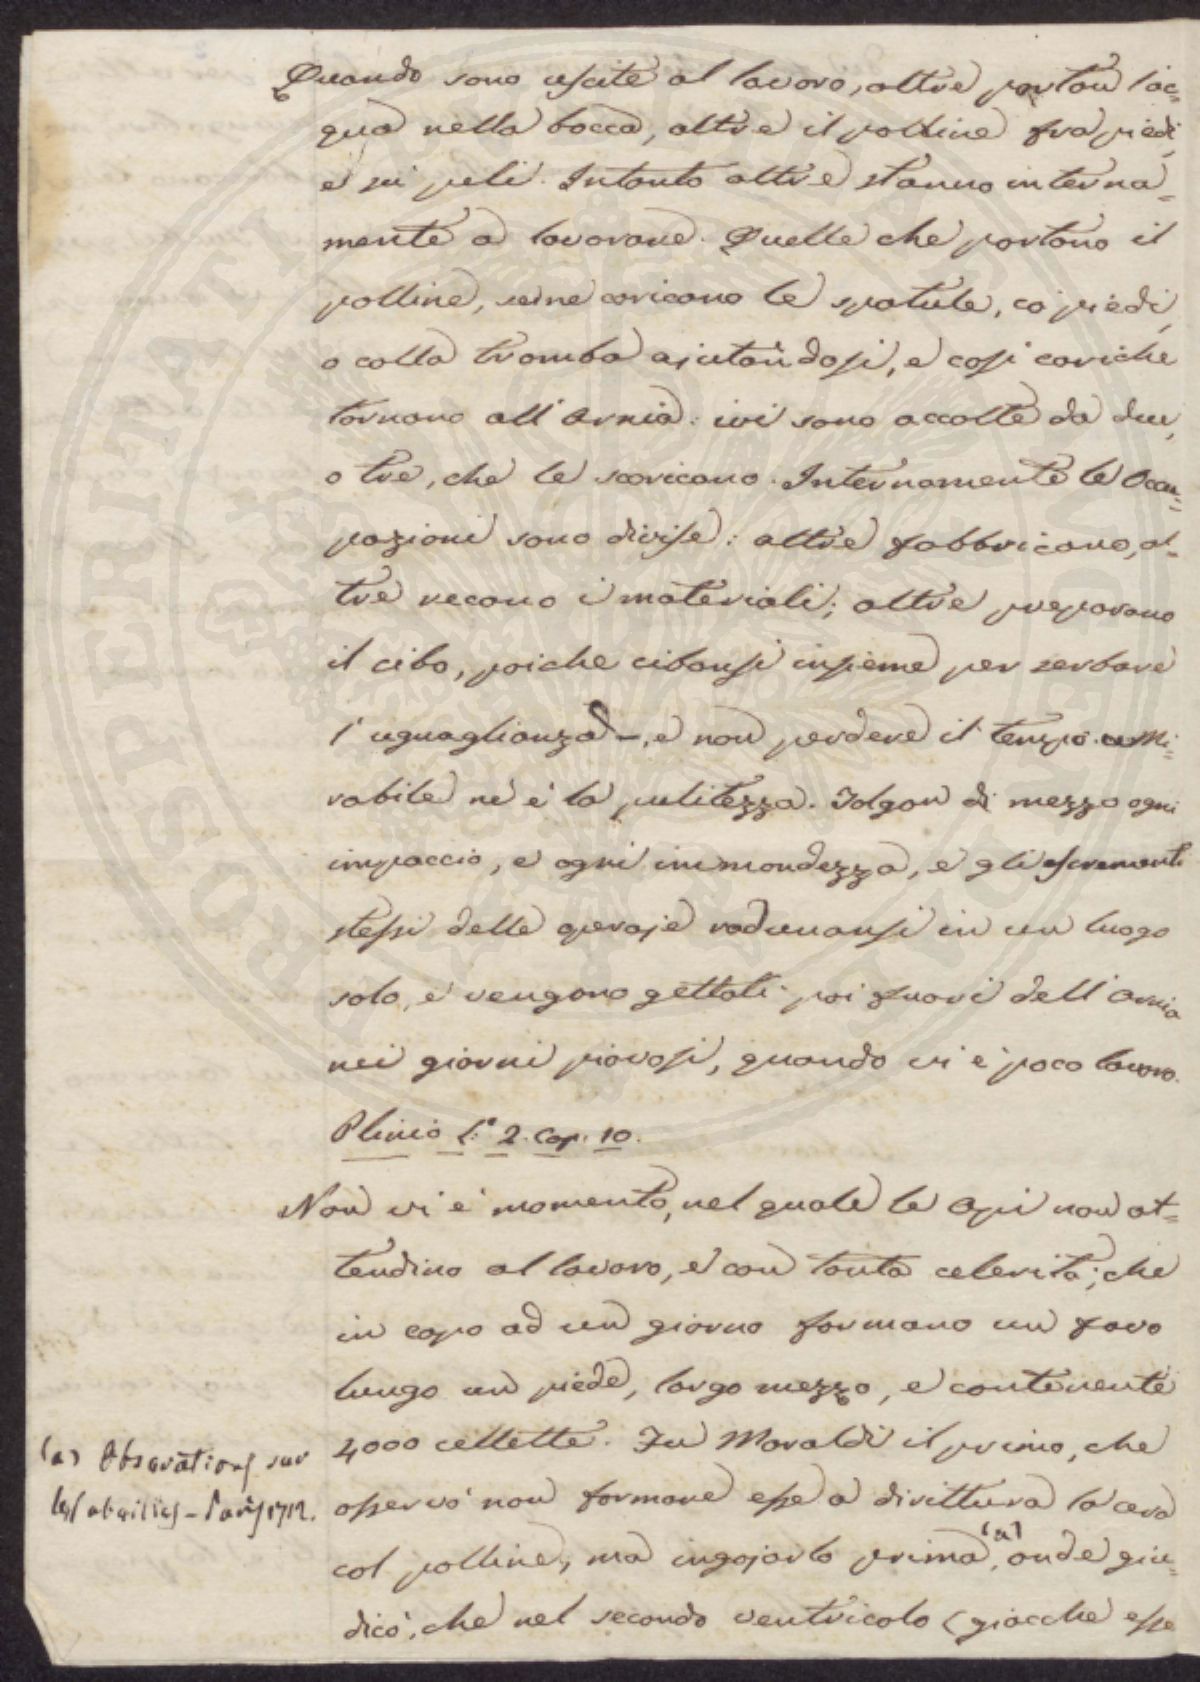 Quando sono uscite al lavoro, altre portan l'ac=
qua nella bocca, altre il polline fra piedi,
e sui peli. Intanto altre stanno interna=
mente a lavorare. Quelle che portano il
polline, se ne caricano le spatule, co' piedi,
o colla tromba ajutandosi, e così cariche
tornano all'Arnia: ivi sono accolte da due,
o tre, che le scaricano. Internamente le Occu=
pazioni sono divise: altre fabbricano, al=
tre recano i materiali; altre preparano
il cibo, poiche cibansi insieme per serbare
l'uguaglianza, e non perdere il tempo. Mi=
rabile ne è la pulitezza. Tolgon di mezzo ogni
impaccio, e ogni immondezza, e gli escrementi
stessi delle operaje radunansi in un luogo
solo, e vengono gettati poi fuori dell'Arnia
nei giorni piovosi, quando vi è poco lavoro.
Plinio L.° 2. Cap. 10.
Non vi è momento, nel quale le Api non at=
tendino al lavoro, e con tanta celerità; che
in capo ad un giorno formano un favo
lungo un piede, largo mezzo, e contenente
4000 cellette. Fu Maraldi il primo, che
osservò non formare esse a dirittura la cera
col polline, ma ingojarlo prima (a), onde giu=
dicò, che nel secondo ventricolo (giacche esse
(a) Observations sur
les abeilles - Paris 1712.